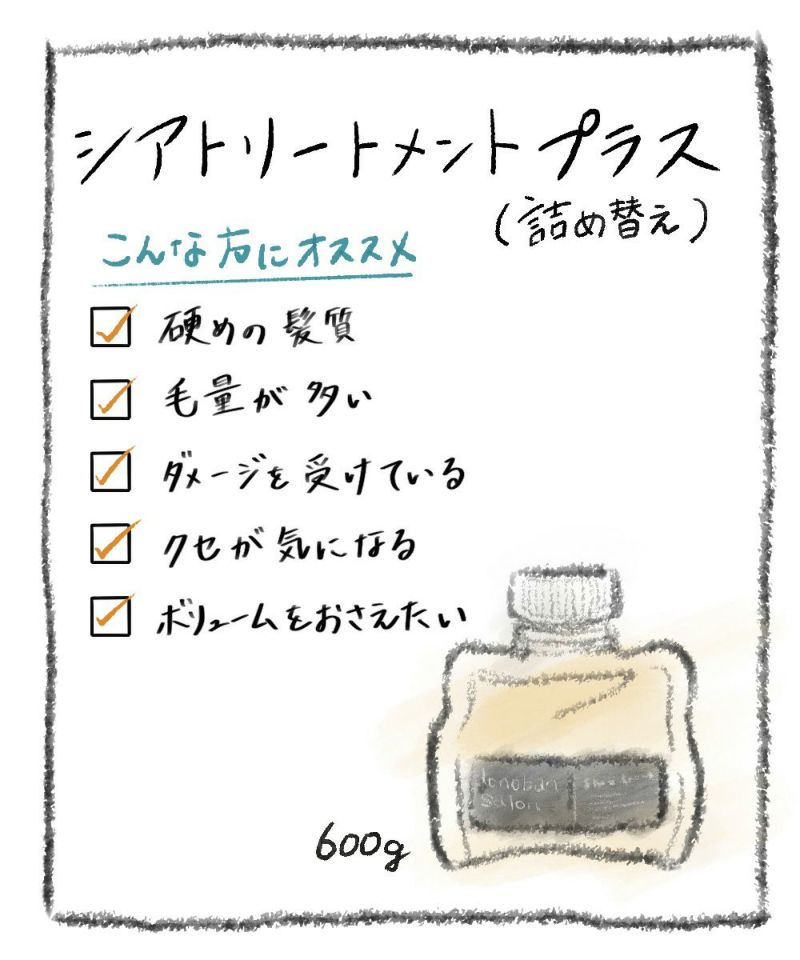 シアトリートメントプラス
(詰め替え)
こんな方にオススメ
硬めの髪質
毛量が多い
ダメージを受けている
クセが気になる
ボリュームをおさえたい
600g
salon